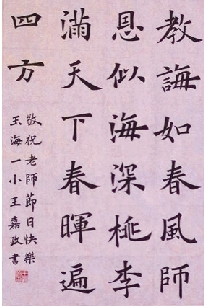 教誨如春風師
恩似海深桃李
滿天下春暉遍
四方
敬祝老師節日快樂
玉海一小王嘉政書